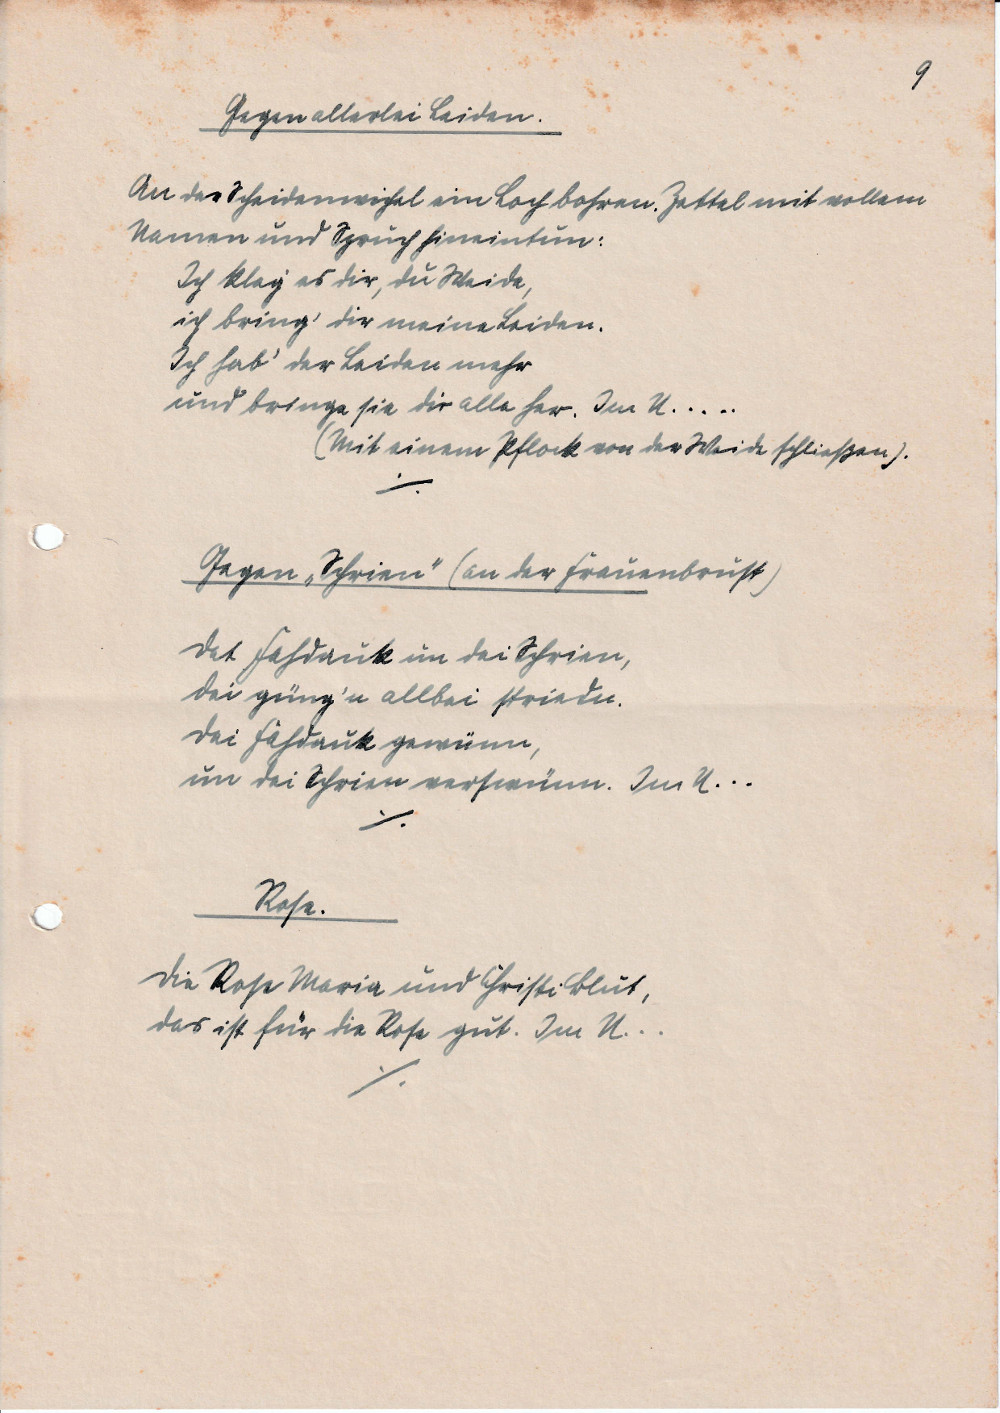 9
Gegen allerlei Leiden.
An der Scheidenwichel ein Loch bohren. Zettel mit vollem
Namen und Spruch hineintun:
Ich klag' es dir, du Weide,
ich bring' dir meine Leiden.
Ich hab' der Leiden mehr
und bringe sie dir alle her. Im N.....
(Mit einem Pflock von der Weide schließen).
./.
Gegen „Schrien" (an der Frauenbrust)
Dat Fahdauk un dei Schrien,
dei güng'n allbei striedn.
Dei Fahdauk gewünn,
un dei Schrien verswünn. Im N...
./.
Rose.
Die Rose Maria und Christi Blut,
das ist für die Rose gut. Im N...
./.